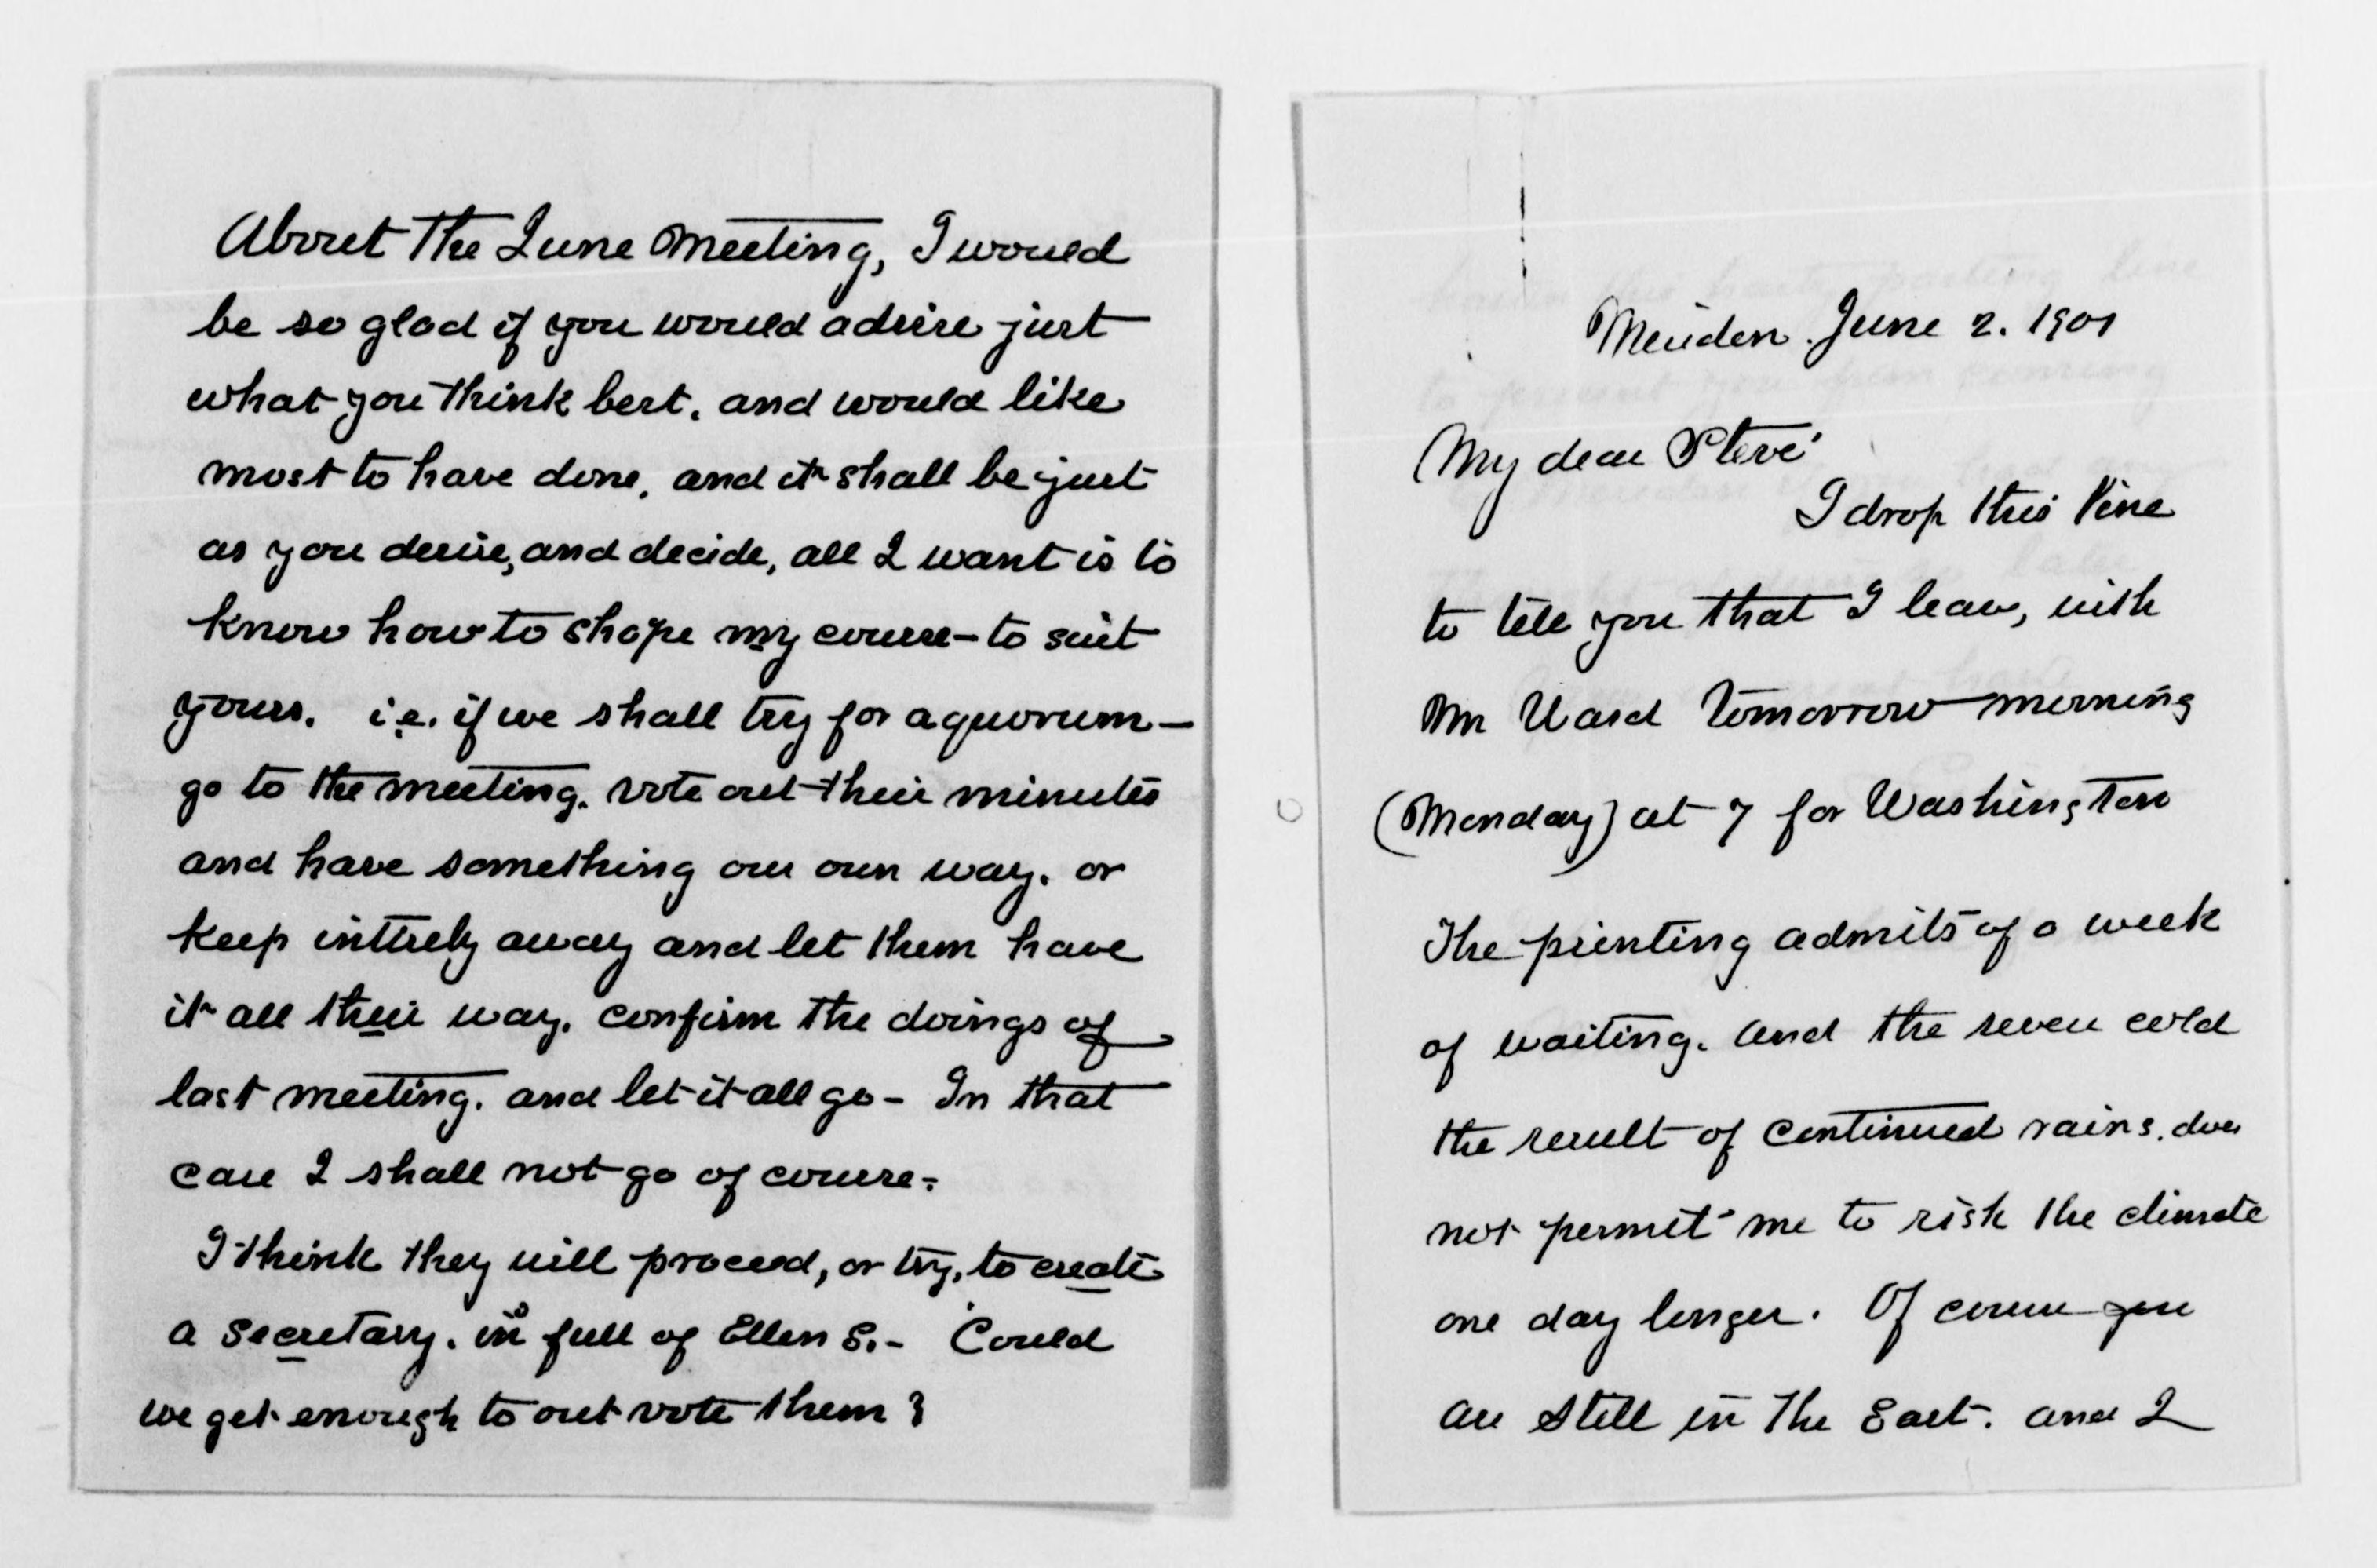 About the June Meeting, I would
be so glad if you would advise just
what you think best. and would like
most to have done, and it shall be just
as you desire, and decide, all I want is to
know how to shape my course – to suit
yours. i.e. if we shall try for a quorum –
go to the meeting. vote out their minutes
and have something our own way. or
keep intirely away and let them have
it all their way. confirm the doings of
last meeting. and let it all go – In that
case I shall not go of course –
I think they will proceed, or try, to create
a secretary. in full of Ellen S. – Could
we get enough to out vote them?
Meriden. June 2. 1901
My dear Steve'
I drop this line
to tell you that I leave, with
Mr Ward tomorrow morning
(Monday) at 7 for Washington
The printing admits of a week
of waiting. And the severe cold
the result of continued rains. does
not permit me to risk the climate
one day longer. Of course you
are still in the East. and I